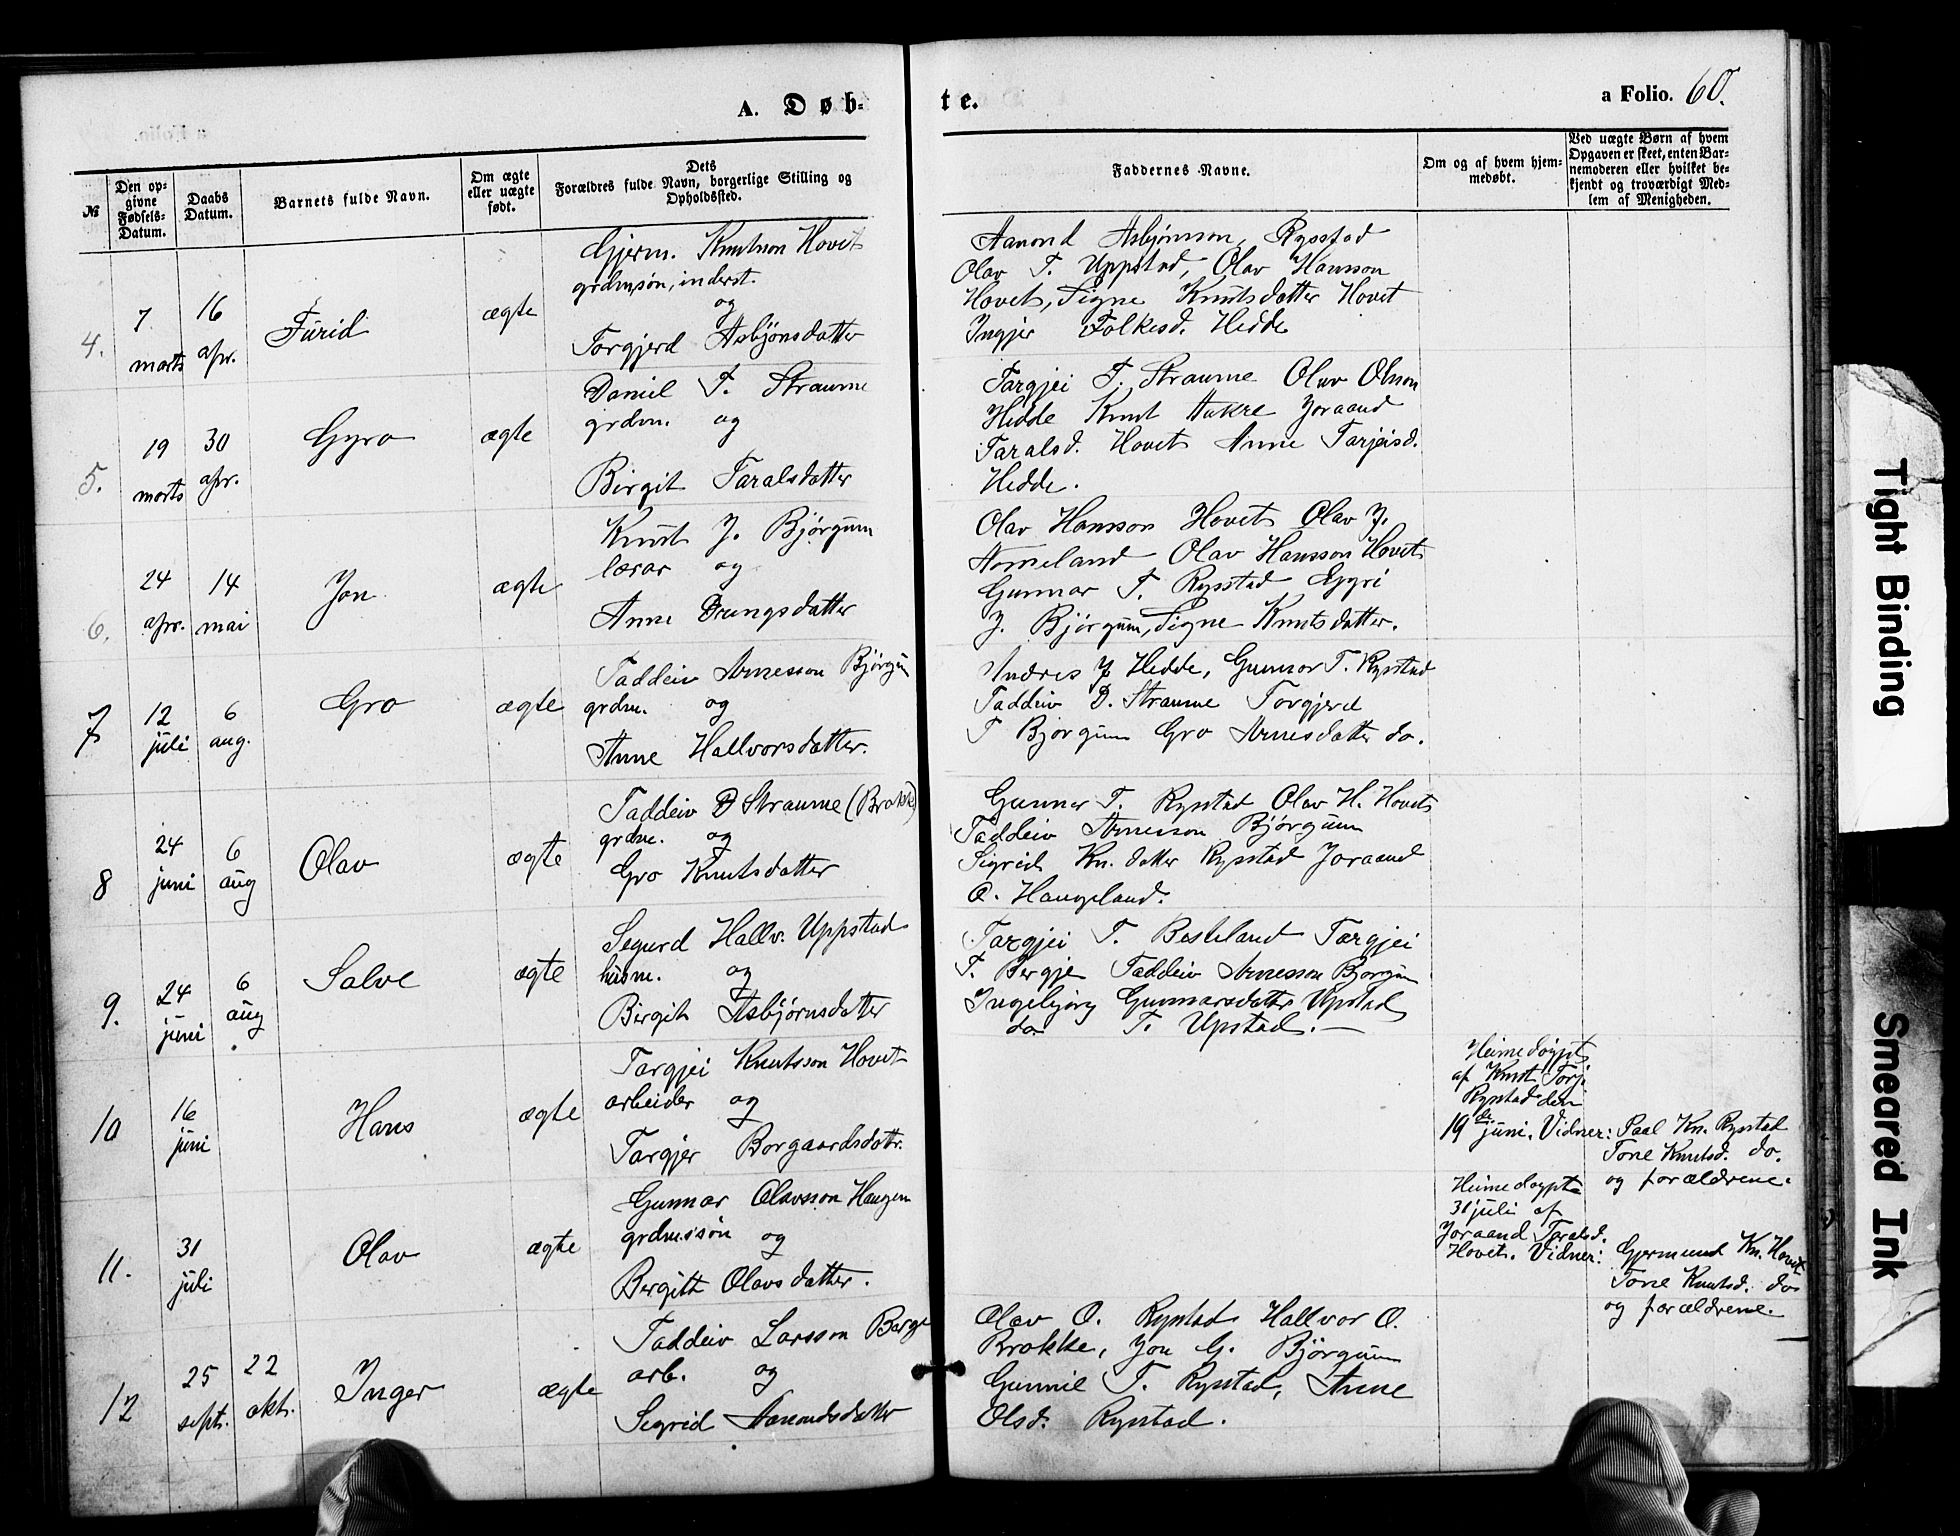 A. Døb-
te.
a Folio. 60.
№
Den op-
givne
Fødsels-
Datum.
Daabs
Datum.
Barnets fulde Navn.
Om ægte
eller uægte
født.
Dets
Forældres fulde Navn, borgerlige Stilling og
Opholdssted.
Faddernes Navne.
Om og af hvem hjem-
medøbt.
Ved uægte Børn af hvem
Opgaven er skeet, enten Bar-
nemoderen eller hvilket be-
kjendt og troværdigt Med-
lem af Menigheden.
4.
7
marts
16
apr.
Turid
ægte
Gjerm. Knutson Hovet
grdmsøn, inderst.
og
Torgjerd Asbjønsdatter
Aanond Asbjørnson, Rysstad
Olav T. Uppstad, Olav Hansson
Hovet, Signe Knutsdatter Hovet
Ingjer Folkesd. Hedde
5.
19
marts
30
apr.
Gyro
ægte
Daniel T. Straume
grdm. og
Birgit Taralsdatter
Targjei T. Straume Olav Olson
Hedde Knut Aakre Joraand
Taralsd. Hovet Anne Tarjeisd.
Hedde.
6.
24
apr.
14
mai
Jon
ægte
Knut J. Bjørgum
lærar og
Anne Drungsdatter
Olav Hansson Hovet Olav J.
Homeland Olav Hansson Hovet
Gunnar T. Rysstad Gyri
J. Bjørgum, Signe Knutsdatter.
7
12
juli
6
aug.
Gro
ægte
Taddeiv Arnesson Bjørgum
grdm. og
Anne Hallvorsdatter.
Andres J Hedde, Gunnar T. Rysstad
Taddeiv D. Straume Torgjerd
T Bjørgum Gro Arnesdatter do.
8
24
juni
6
aug
Olav
ægte
Taddeiv D Straume (Brokke)
grdm. og
Gro Knutsdatter
Gunnar T. Rysstad Olav H. Hovet
Taddeiv Arnesson Bjørgum
Sigrid Kn. datter Rysstad Joraand
O. Haugeland.
9.
24
juni
6
aug
Salve
ægte
Segurd Hallv. Uppstad
husm. og
Birgit Asbjørnsdatter
Targjei T. Besteland Targjei
T. Bergje Taddeiv Arnesson Bjørgum
Ingebjørg Gunnarsdatter Upstad
do T. Upstad.
10
16
juni
Hans
ægte
Targjei Knutsson Hovet
arbeider og
Targjer Borgaardsdotr.
Heimedøypt
af Knut Torj.
Rysstad den
19de juni. Vidner: Paal Kn. Rysstad
Tone Knutsd. do.
og forældrene.
11.
31
juli
Olav
ægte
Gunnar Olavsson Haugen
grdmssøn og
Bergitt Olavsdatter.
Heimedøypt
31 juli af
Joraand Taralsd.
Hovet. Vidner: Gjermund Kn. Hovet
Tone Knutsd. do
og forældrene.
12
25
sept.
22
okt.
Inger
ægte
Taddeiv Larsson Barge
arb. og
Segrid Aanondsdatter
Olav O. Rysstad Hallvor O.
Brokke, Jon G. Bjørgum
Gunnil T. Rysstad, Anne
Olsd. Rysstad.
Tight Binding
Smeared Ink